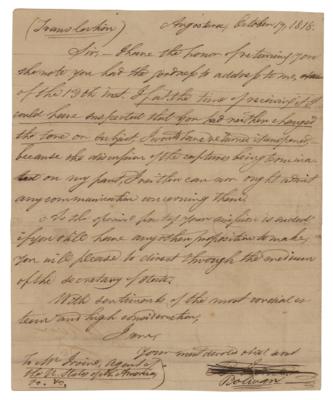 (Translation) Angostura, October 17, 1818.
Sir, I have the honor of returning you
the note you had the goodness to address to me,
of the 13th inst. If at the time of receiving it I
could have suspected that you had neither changed
the tone or subject I would have returned it unopened,
because the discussion of the captures being termina
ted on my part, I neither can nor ought admit
any communication concerning them.
As the special part of your mission is ended
if you still have any other proposition to make,
you will please to direct through the medium
of the secretary of state.
With sentiments of the most cordial es
teem and high consideration,
I am,
Your most devoted obed. servt
Bolivar.
To Mr. Irvine, Agent of
the U. States of N. America
&c. &c.